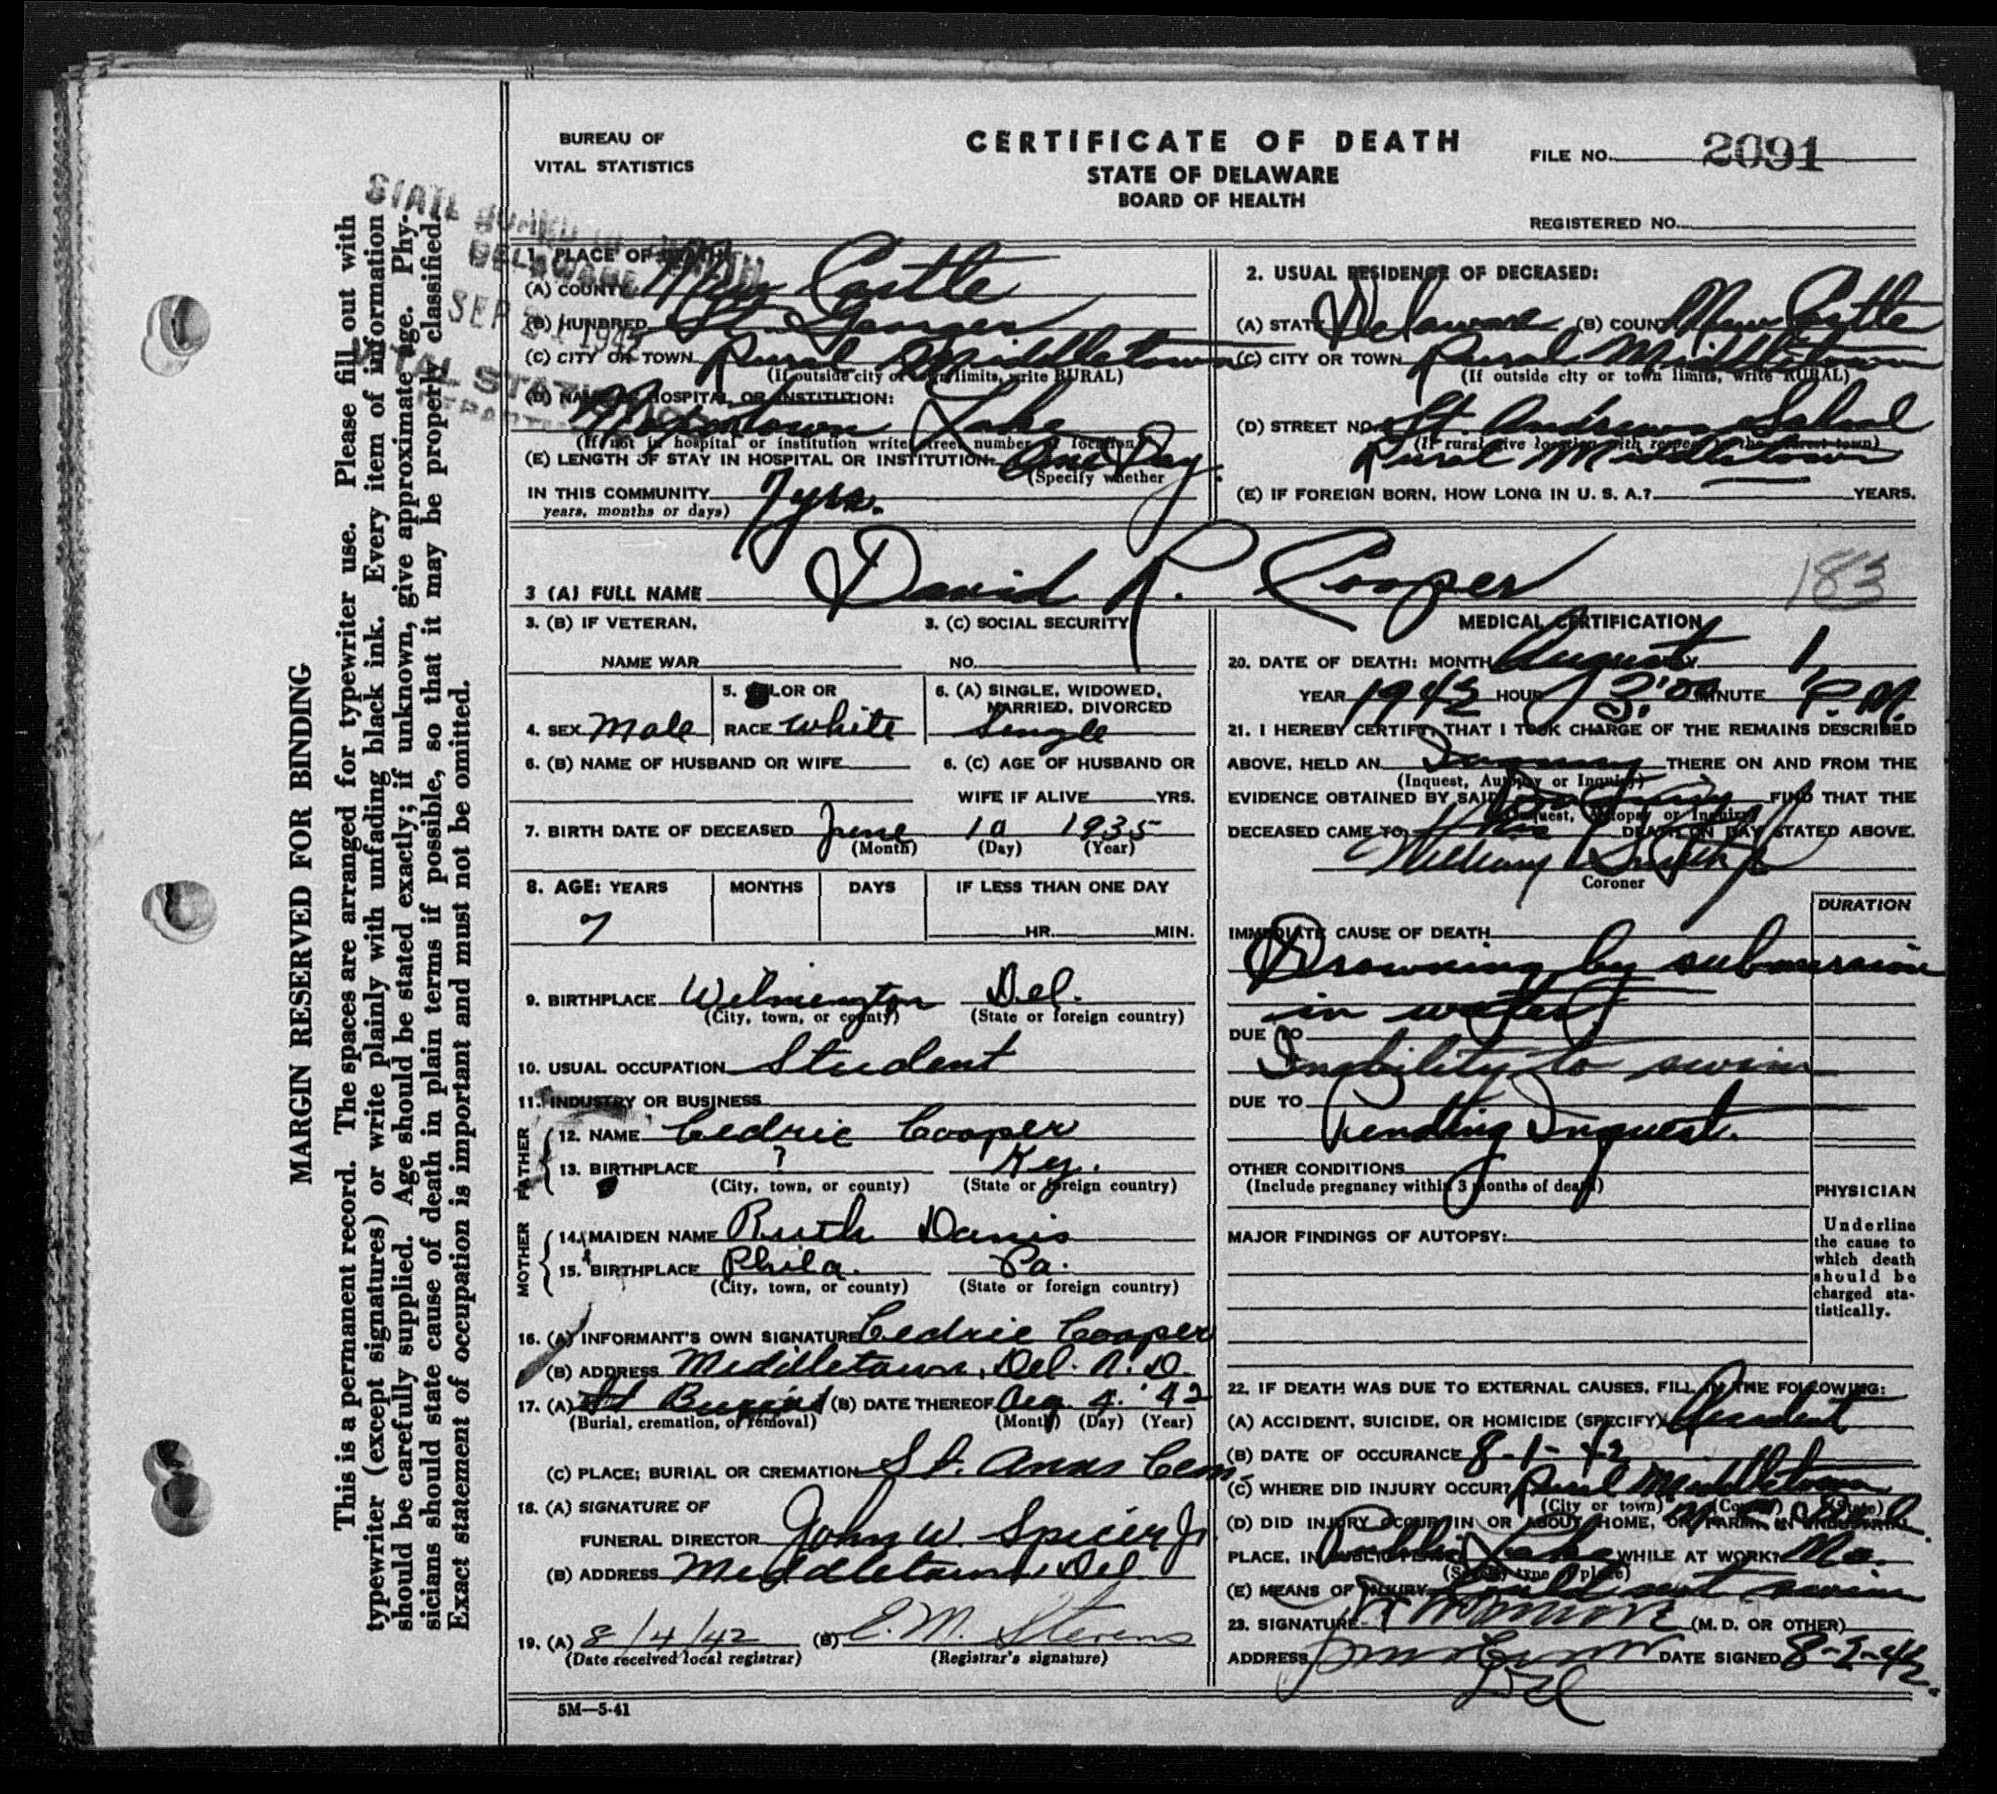 BUREAU OF
VITAL STATISTICS
CERTIFICATE OF DEATH
STATE OF DELAWARE
BOARD OF HEALTH
FILE NO. 2091
REGISTERED NO.
MARGIN RESERVED FOR BINDING
This is a permanent record. The spaces are arranged for typewriter use. Please fill out with
typewriter (except signatures) or write plainly with unfading black ink. Every item of information
should be carefully supplied. Age should be stated exactly; if unknown, give approximate age. Phy-
sicians should state cause of death in plain terms if possible, so that it may be properly classified.
Exact statement of occupation is important and must not be omitted.
1. PLACE OF DEATH
(A) COUNTY New Castle
(B) HUNDRED St. Georges
(C) CITY OR TOWN Rural Middletown
(If outside city or town limits, write RURAL)
(D) NAME OF HOSPITAL OR INSTITUTION:
Lake
(If not in hospital or institution write street number or location)
(E) LENGTH OF STAY IN HOSPITAL OR INSTITUTION One Day
(Specify whether
IN THIS COMMUNITY 7 yrs.
years, months or days)
2. USUAL RESIDENCE OF DECEASED:
(A) STATE Delaware (B) COUNTY New Castle
(C) CITY OR TOWN Rural Middletown
(If outside city or town limits, write RURAL)
(D) STREET NO. St. Andrews School
(If rural give location with respect to the nearest town)
Rural Middletown
(E) IF FOREIGN BORN, HOW LONG IN U. S. A.? YEARS.
3 (A) FULL NAME David R. Cooper
183
3. (B) IF VETERAN,
NAME WAR
3. (C) SOCIAL SECURITY
NO.
4. SEX Male
5. COLOR OR
RACE White
6. (A) SINGLE, WIDOWED,
MARRIED, DIVORCED
Single
6. (B) NAME OF HUSBAND OR WIFE
6. (C) AGE OF HUSBAND OR
WIFE IF ALIVE YRS.
7. BIRTH DATE OF DECEASED June 10 1935
(Month) (Day) (Year)
8. AGE: YEARS MONTHS DAYS IF LESS THAN ONE DAY
7 HR. MIN.
9. BIRTHPLACE Wilmington Del.
(City, town, or county) (State or foreign country)
10. USUAL OCCUPATION Student
11. INDUSTRY OR BUSINESS
FATHER
12. NAME Cedric Cooper
13. BIRTHPLACE ? Ky.
(City, town, or county) (State or foreign country)
MOTHER
14. MAIDEN NAME Ruth Davis
15. BIRTHPLACE Phila. Pa.
(City, town, or county) (State or foreign country)
16. (A) INFORMANT'S OWN SIGNATURE Cedric Cooper
(B) ADDRESS Middletown, Del. R. D.
17. (A) Burial (B) DATE THEREOF Aug. 4. '42
(Burial, cremation, or removal) (Month) (Day) (Year)
(C) PLACE; BURIAL OR CREMATION St. Anns Cem.
18. (A) SIGNATURE OF
FUNERAL DIRECTOR John W. Spicer Jr.
(B) ADDRESS Middletown, Del
19. (A) 8/4/42 (B) E. M. Stevens
(Date received local registrar) (Registrar's signature)
5M—5-41
MEDICAL CERTIFICATION
20. DATE OF DEATH: MONTH August DAY 1,
YEAR 1942 HOUR 3:00 MINUTE P. M.
21. I HEREBY CERTIFY, THAT I TOOK CHARGE OF THE REMAINS DESCRIBED
ABOVE, HELD AN Inquiry THERE ON AND FROM THE
(Inquest, Autopsy or Inquiry)
EVIDENCE OBTAINED BY SAID Inquiry FIND THAT THE
(Inquest, Autopsy or Inquiry)
DECEASED CAME TO His DEATH ON DAY STATED ABOVE.
William J Smith Jr
Coroner
DURATION
IMMEDIATE CAUSE OF DEATH
Drowning by submersion
in water
DUE TO
Inability to swim
DUE TO
Pending Inquest.
OTHER CONDITIONS
(Include pregnancy within 3 months of death)
MAJOR FINDINGS OF AUTOPSY:
PHYSICIAN
Underline
the cause to
which death
should be
charged sta-
tistically.
22. IF DEATH WAS DUE TO EXTERNAL CAUSES, FILL IN THE FOLLOWING:
(A) ACCIDENT, SUICIDE, OR HOMICIDE (SPECIFY) Accident
(B) DATE OF OCCURANCE 8-1-42
(C) WHERE DID INJURY OCCUR? Rural Middletown
(City or town) (County) (State)
(D) DID INJURY OCCUR IN OR ABOUT HOME, ON FARM, IN INDUSTRIAL
PLACE, IN PUBLIC PLACE Public Lake WHILE AT WORK? No.
(Specify type of place)
(E) MEANS OF INJURY Could not swim
23. SIGNATURE (M. D. OR OTHER)
ADDRESS DATE SIGNED 8-2-42.
Del